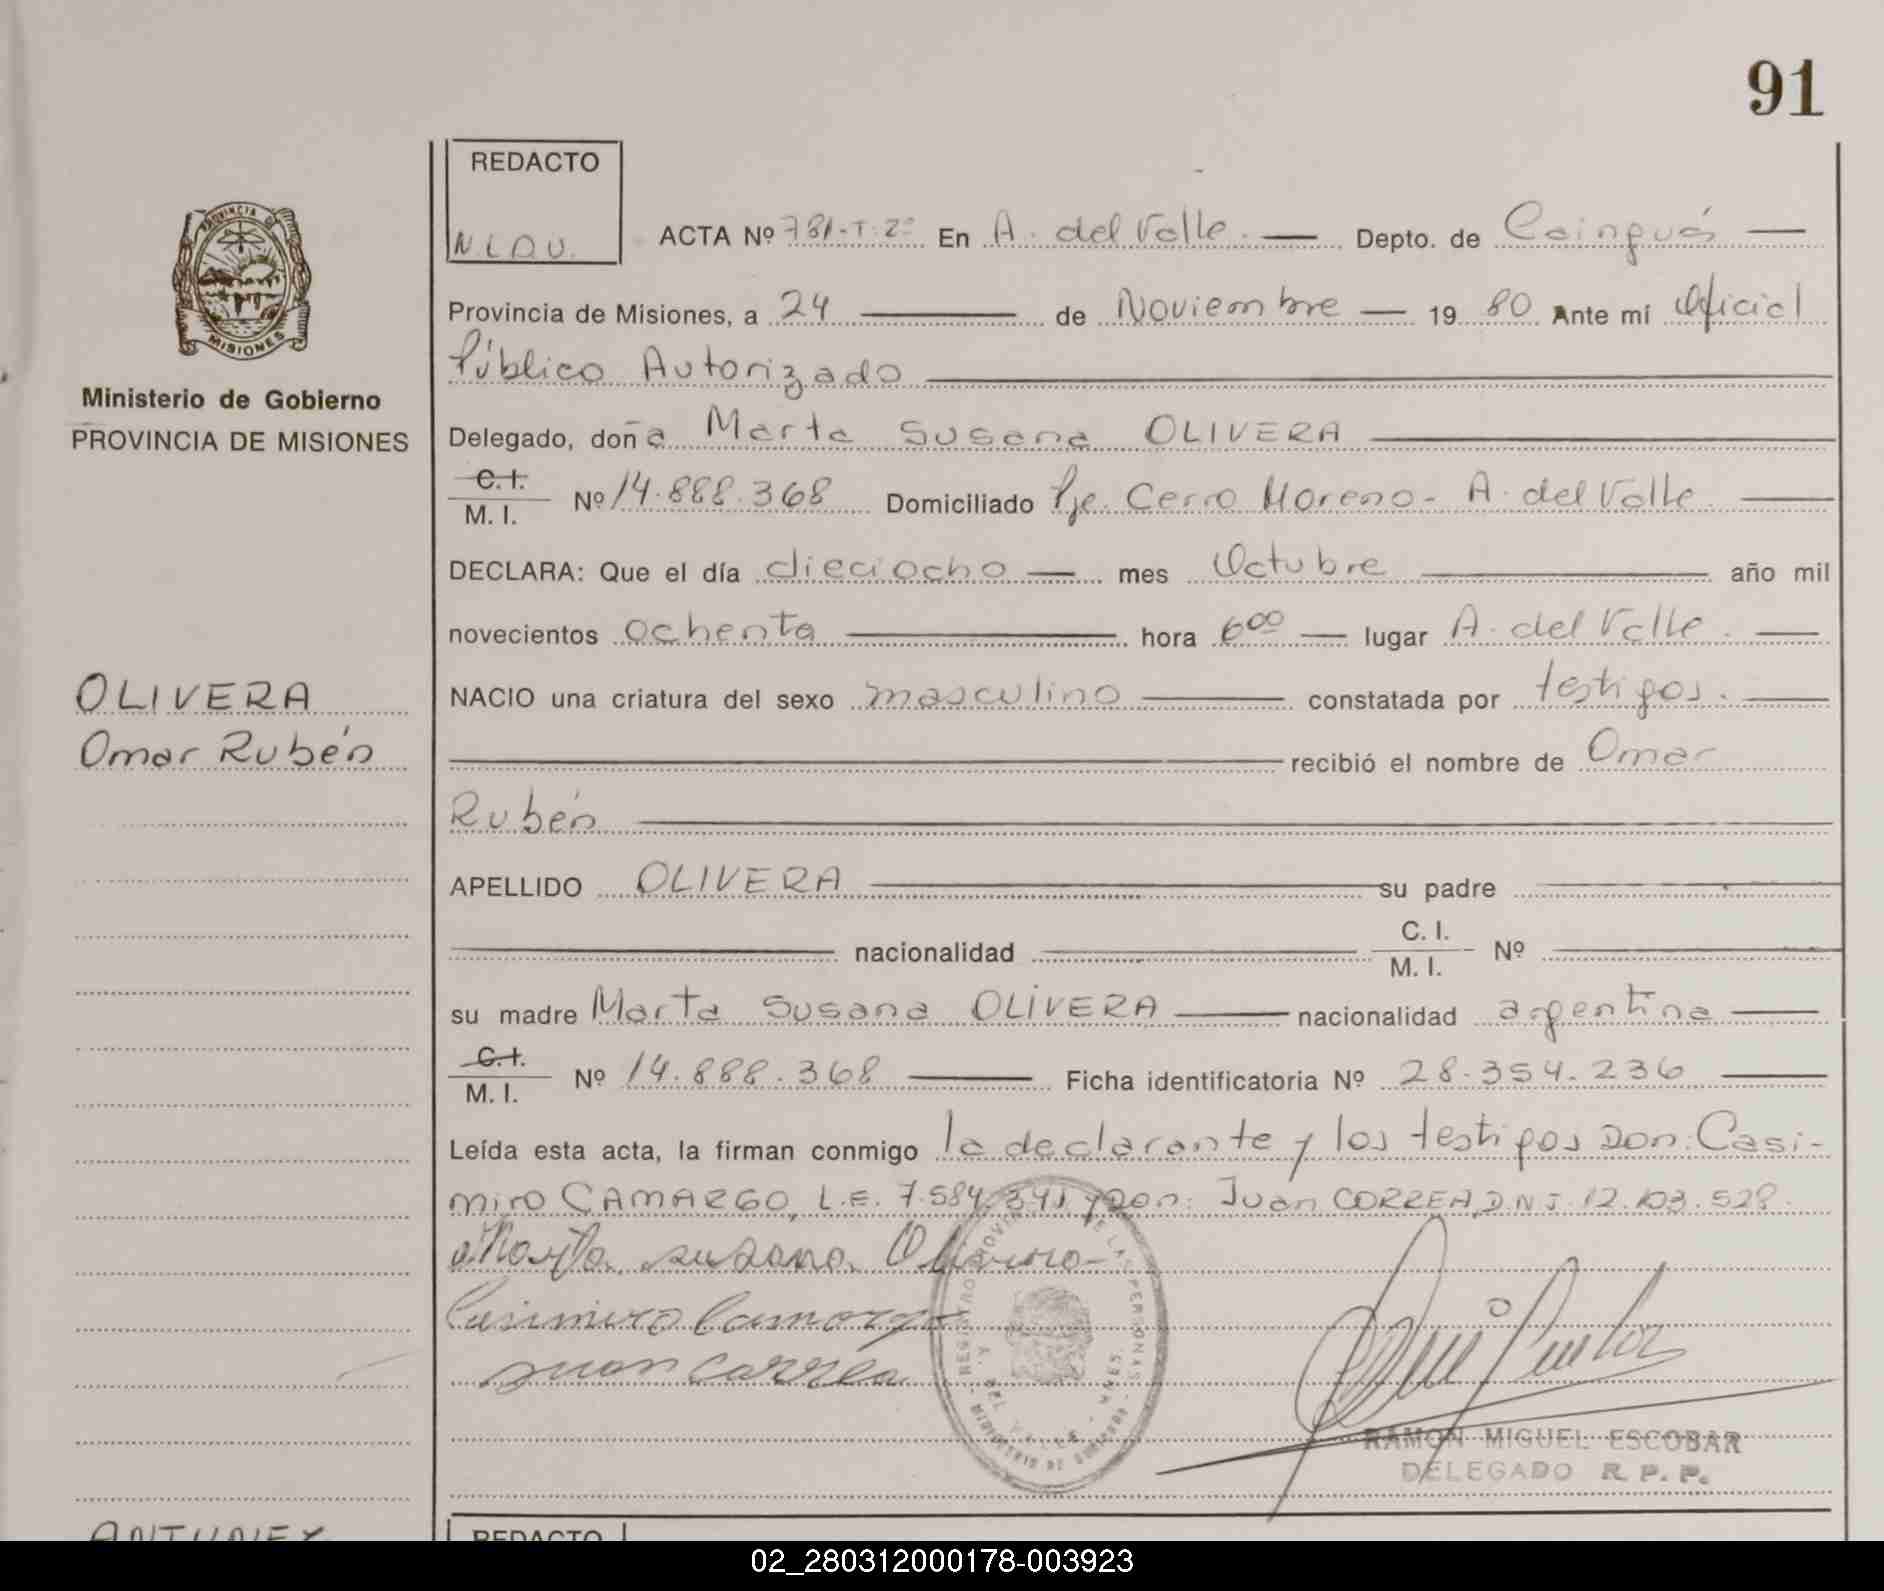 91
REDACTO
N.L.D.V.
ACTA Nº 781-T.2º En A. del Valle. — Depto. de Cainguás —
PROVINCIA DE
MISIONES
Ministerio de Gobierno
PROVINCIA DE MISIONES
Provincia de Misiones, a 24 — de Noviembre — 19 80 Ante mí Oficial
Público Autorizado —
Delegado, doña Marta Susana OLIVERA —
C. I.
M. I. Nº 14.888.368 Domiciliado Pje. Cerro Moreno - A. del Valle. —
DECLARA: Que el día dieciocho — mes Octubre — año mil
novecientos ochenta — hora 6 00 — lugar A. del Valle. —
OLIVERA
Omar Rubén
NACIO una criatura del sexo masculino — constatada por testigos. —
— recibió el nombre de Omar
Rubén —
APELLIDO OLIVERA — su padre —
— nacionalidad — C. I.
M. I. Nº —
su madre Marta Susana OLIVERA — nacionalidad argentina —
C. I.
M. I. Nº 14.888.368 — Ficha identificatoria Nº 28.354.236 —
Leída esta acta, la firman conmigo la declarante y los testigos Don: Casi-
miro CAMARGO, L.E. 7.584.341 y Don: Juan CORREA, D.N.I. 12.103.528.
Marta susana Olivera
Casimiro Camargo
juan correa
REGISTRO PROVINCIAL DE LAS PERSONAS
A. DEL VALLE - MNES.
MINISTERIO DE GOBIERNO
RAMON MIGUEL ESCOBAR
DELEGADO R. P. P.
ANTUNEZ
REDACTO
02_280312000178-003923